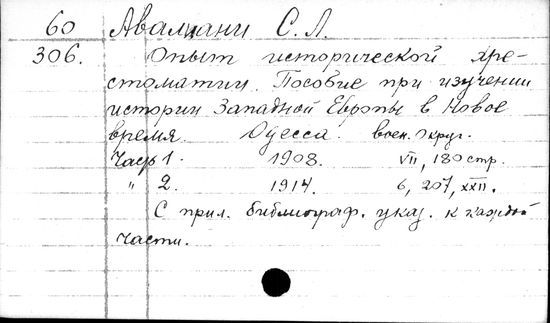 60 Авалиани С. Л.
306. Опыт исторической хре-
стоматии. Пособие при изучении
истории Западной Европы в Новое
время. Одесса. воен. округ.
Часть 1. 1908. VII, 180 стр.
" 2. 1914. 6, 207, XXII.
С прил. библиограф. указ. к каждой
части.